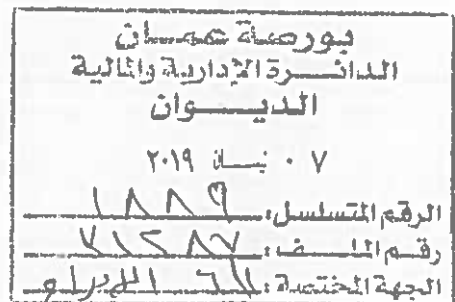 بورصة عمان
الدائرة الإدارية والمالية
الديوان
٠٧ نيسان ٢٠١٩
الرقم المتسلسل: ١٨٨٩
رقم الملف:
الجهة المختصة: